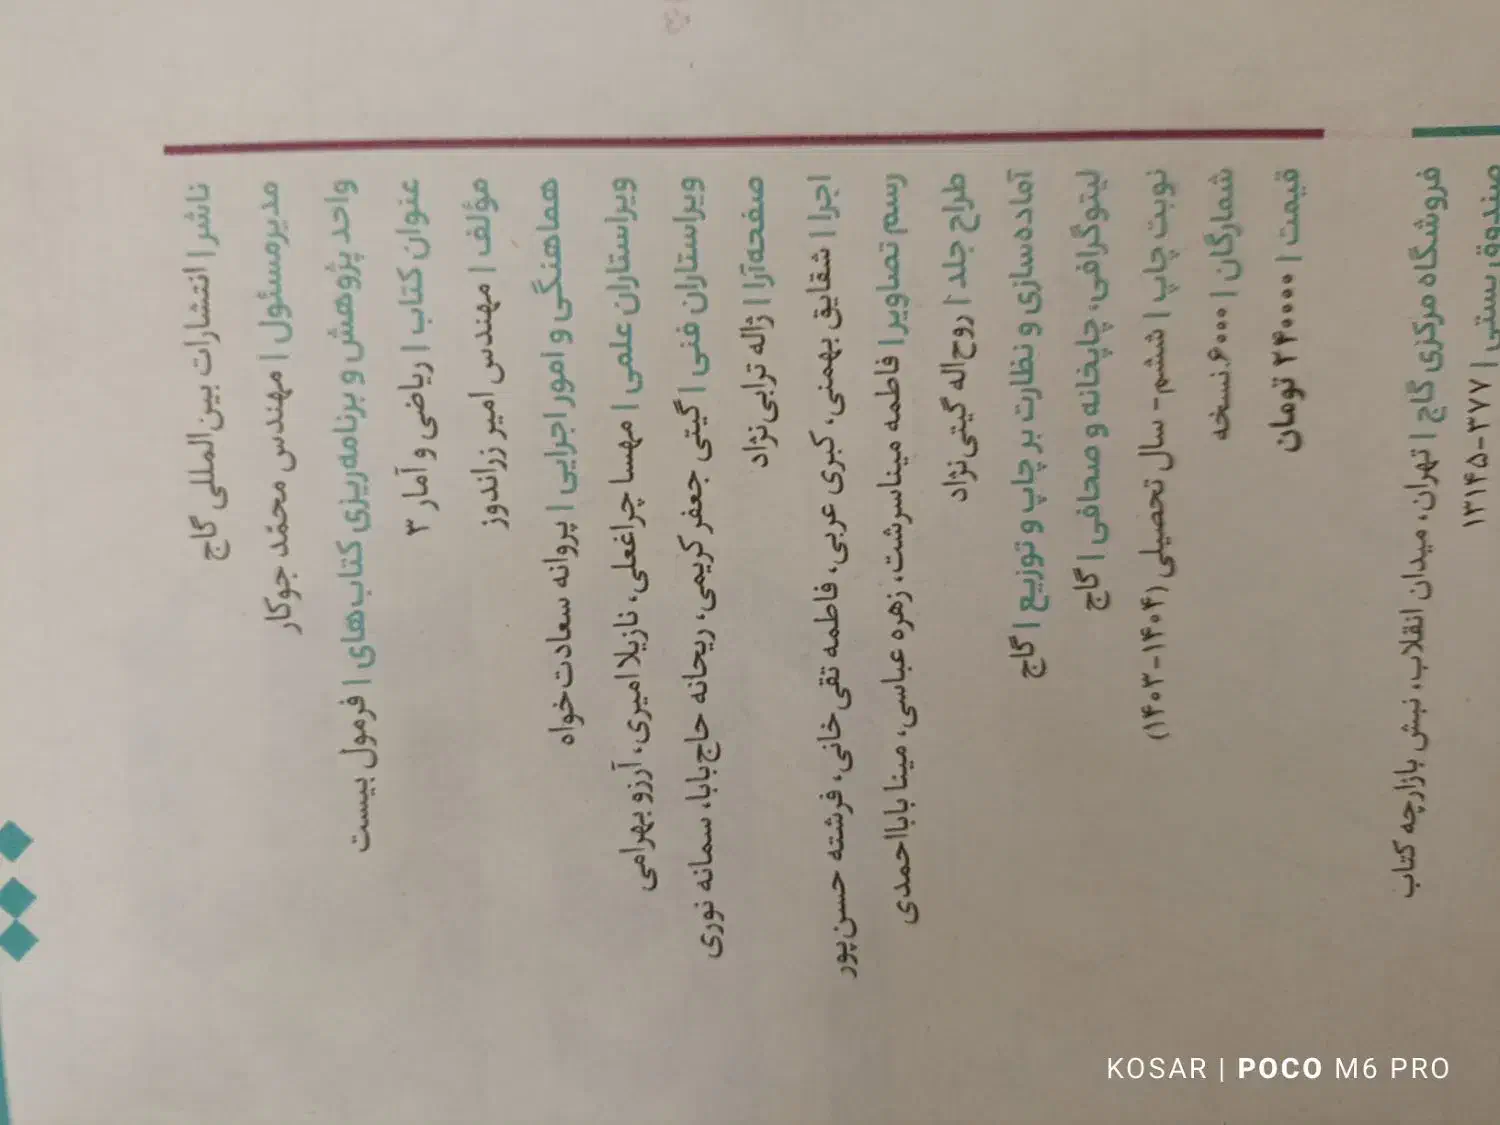 ناشر | انتشارات بین‌المللی گاج
مدیرمسئول | مهندس محمّد جوکار
واحد پژوهش و برنامه‌ریزی کتاب‌های | فرمول بیست
عنوان کتاب | ریاضی و آمار ۳
مؤلف | مهندس امیر زراندوز
هماهنگی و امور اجرایی | پروانه سعادت‌خواه
ویراستاران علمی | مهسا چراغعلی، نازیلا امیری، آرزو بهرامی
ویراستاران فنی | گیتی جعفر کریمی، ریحانه حاج‌بابا، سمانه نوری
صفحه‌آرا | ژاله ترابی‌نژاد
اجرا | شقایق بهمنی، کبری عربی، فاطمه تقی خانی، فرشته حسن‌پور
رسم تصاویر | فاطمه میناسرشت، زهره عباسی، مینا بابااحمدی
طراح جلد | روح‌اله گیتی‌نژاد
آماده‌سازی و نظارت بر چاپ و توزیع | گاج
لیتوگرافی، چاپخانه و صحافی | گاج
نوبت چاپ | ششم- سال تحصیلی (۱۴۰۴-۱۴۰۳)
شمارگان | ۶۰۰۰ نسخه
قیمت | ۲۴۰۰۰۰ تومان
فروشگاه مرکزی گاج | تهران، میدان انقلاب، نبش بازارچه کتاب
صندوق پستی | ۳۷۷-۱۳۱۴۵
KOSAR | POCO M6 PRO